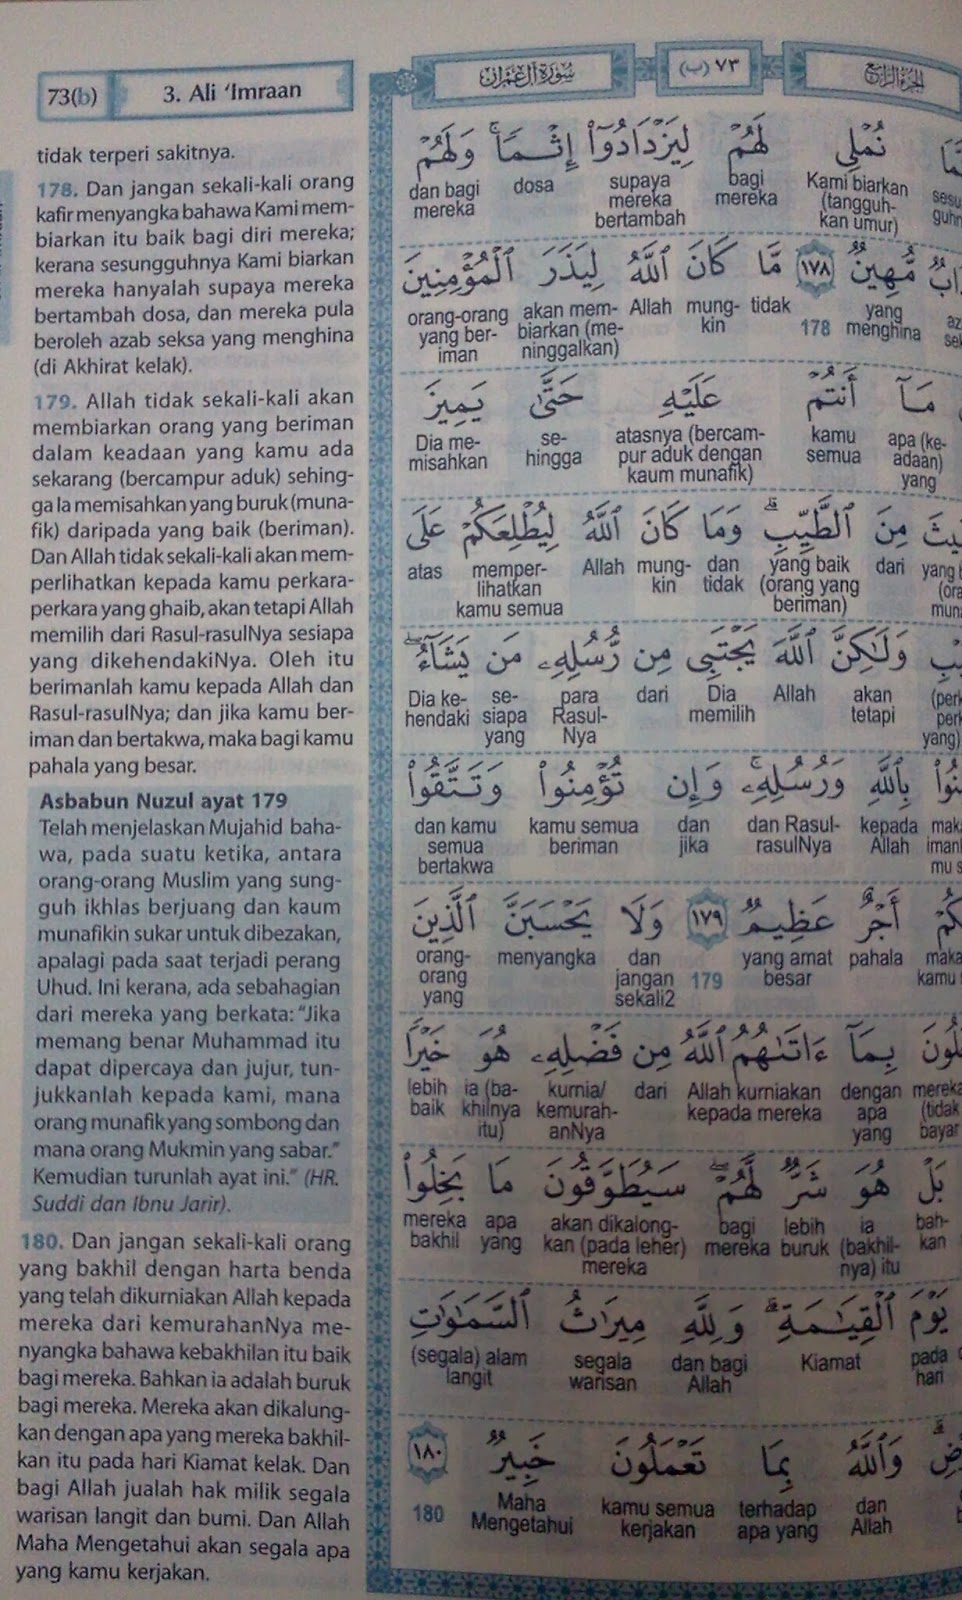 73(b) 3. Ali ‘Imraan
tidak terperi sakitnya.
178. Dan jangan sekali-kali orang
kafir menyangka bahawa Kami mem-
biarkan itu baik bagi diri mereka;
kerana sesungguhnya Kami biarkan
mereka hanyalah supaya mereka
bertambah dosa, dan mereka pula
beroleh azab seksa yang menghina
(di Akhirat kelak).
179. Allah tidak sekali-kali akan
membiarkan orang yang beriman
dalam keadaan yang kamu ada
sekarang (bercampur aduk) sehing-
ga Ia memisahkan yang buruk (muna-
fik) daripada yang baik (beriman).
Dan Allah tidak sekali-kali akan mem-
perlihatkan kepada kamu perkara-
perkara yang ghaib, akan tetapi Allah
memilih dari Rasul-rasulNya sesiapa
yang dikehendakiNya. Oleh itu
berimanlah kamu kepada Allah dan
Rasul-rasulNya; dan jika kamu ber-
iman dan bertakwa, maka bagi kamu
pahala yang besar.
Asbabun Nuzul ayat 179
Telah menjelaskan Mujahid baha-
wa, pada suatu ketika, antara
orang-orang Muslim yang sung-
guh ikhlas berjuang dan kaum
munafikin sukar untuk dibezakan,
apalagi pada saat terjadi perang
Uhud. Ini kerana, ada sebahagian
dari mereka yang berkata: “Jika
memang benar Muhammad itu
dapat dipercaya dan jujur, tun-
jukkanlah kepada kami, mana
orang munafik yang sombong dan
mana orang Mukmin yang sabar.”
Kemudian turunlah ayat ini.” (HR.
Suddi dan Ibnu Jarir).
180. Dan jangan sekali-kali orang
yang bakhil dengan harta benda
yang telah dikurniakan Allah kepada
mereka dari kemurahanNya me-
nyangka bahawa kebakhilan itu baik
bagi mereka. Bahkan ia adalah buruk
bagi mereka. Mereka akan dikalung-
kan dengan apa yang mereka bakhil-
kan itu pada hari Kiamat kelak. Dan
bagi Allah jualah hak milik segala
warisan langit dan bumi. Dan Allah
Maha Mengetahui akan segala apa
yang kamu kerjakan.
الجزء الرابع ٧٣ (ب) سورة آل عمران
نُمْلِي لَهُمْ لِيَزْدَادُوٓا۟ إِثْمًا ۚ وَلَهُمْ
Kami biarkan bagi supaya dosa dan bagi
(tangguh- mereka mereka mereka
kan umur) bertambah
مُّهِينٌ ١٧٨ مَّا كَانَ ٱللَّهُ لِيَذَرَ ٱلْمُؤْمِنِينَ
yang 178 tidak mung- Allah akan mem- orang-orang
menghina kin biarkan (me- yang ber-
ninggalkan) iman
مَآ أَنتُمْ عَلَيْهِ حَتَّىٰ يَمِيزَ
apa (ke- kamu atasnya (bercam- se- Dia me-
adaan) semua pur aduk dengan hingga misahkan
yang kaum munafik)
مِنَ ٱلطَّيِّبِ ۗ وَمَا كَانَ ٱللَّهُ لِيُطْلِعَكُمْ عَلَى
dari yang baik dan mung- Allah memper- atas
(orang yang tidak kin lihatkan
beriman) kamu semua
وَلَٰكِنَّ ٱللَّهَ يَجْتَبِى مِن رُّسُلِهِۦ مَن يَشَآءُ ۖ
akan Allah Dia dari para se- Dia ke-
tetapi memilih Rasul- siapa hendaki
Nya yang
بِٱللَّهِ وَرُسُلِهِۦ ۚ وَإِن تُؤْمِنُوا۟ وَتَتَّقُوا۟
kepada dan Rasul- dan kamu semua dan kamu
Allah rasulNya jika beriman semua
bertakwa
أَجْرٌ عَظِيمٌ ١٧٩ وَلَا يَحْسَبَنَّ ٱلَّذِينَ
pahala yang amat 179 dan menyangka orang-
besar jangan orang
sekali2 yang
بِمَآ ءَاتَىٰهُمُ ٱللَّهُ مِن فَضْلِهِۦ هُوَ خَيْرًا
dengan Allah kurniakan dari kurnia/ ia (ba- lebih
apa kepada mereka kemurah- khilnya baik
yang anNya itu)
بَلْ هُوَ شَرٌّ لَّهُمْ ۖ سَيُطَوَّقُونَ مَا بَخِلُوا۟
bah- ia lebih bagi akan dikalong- apa mereka
kan (bakhil- buruk mereka kan (pada leher) yang bakhil
nya) itu mereka
يَوْمَ ٱلْقِيَٰمَةِ ۗ وَلِلَّهِ مِيرَٰثُ ٱلسَّمَٰوَٰتِ
pada Kiamat dan bagi segala (segala) alam
hari Allah warisan langit
وَٱللَّهُ بِمَا تَعْمَلُونَ خَبِيرٌ ١٨٠
dan terhadap kamu semua Maha 180
Allah apa yang kerjakan Mengetahui